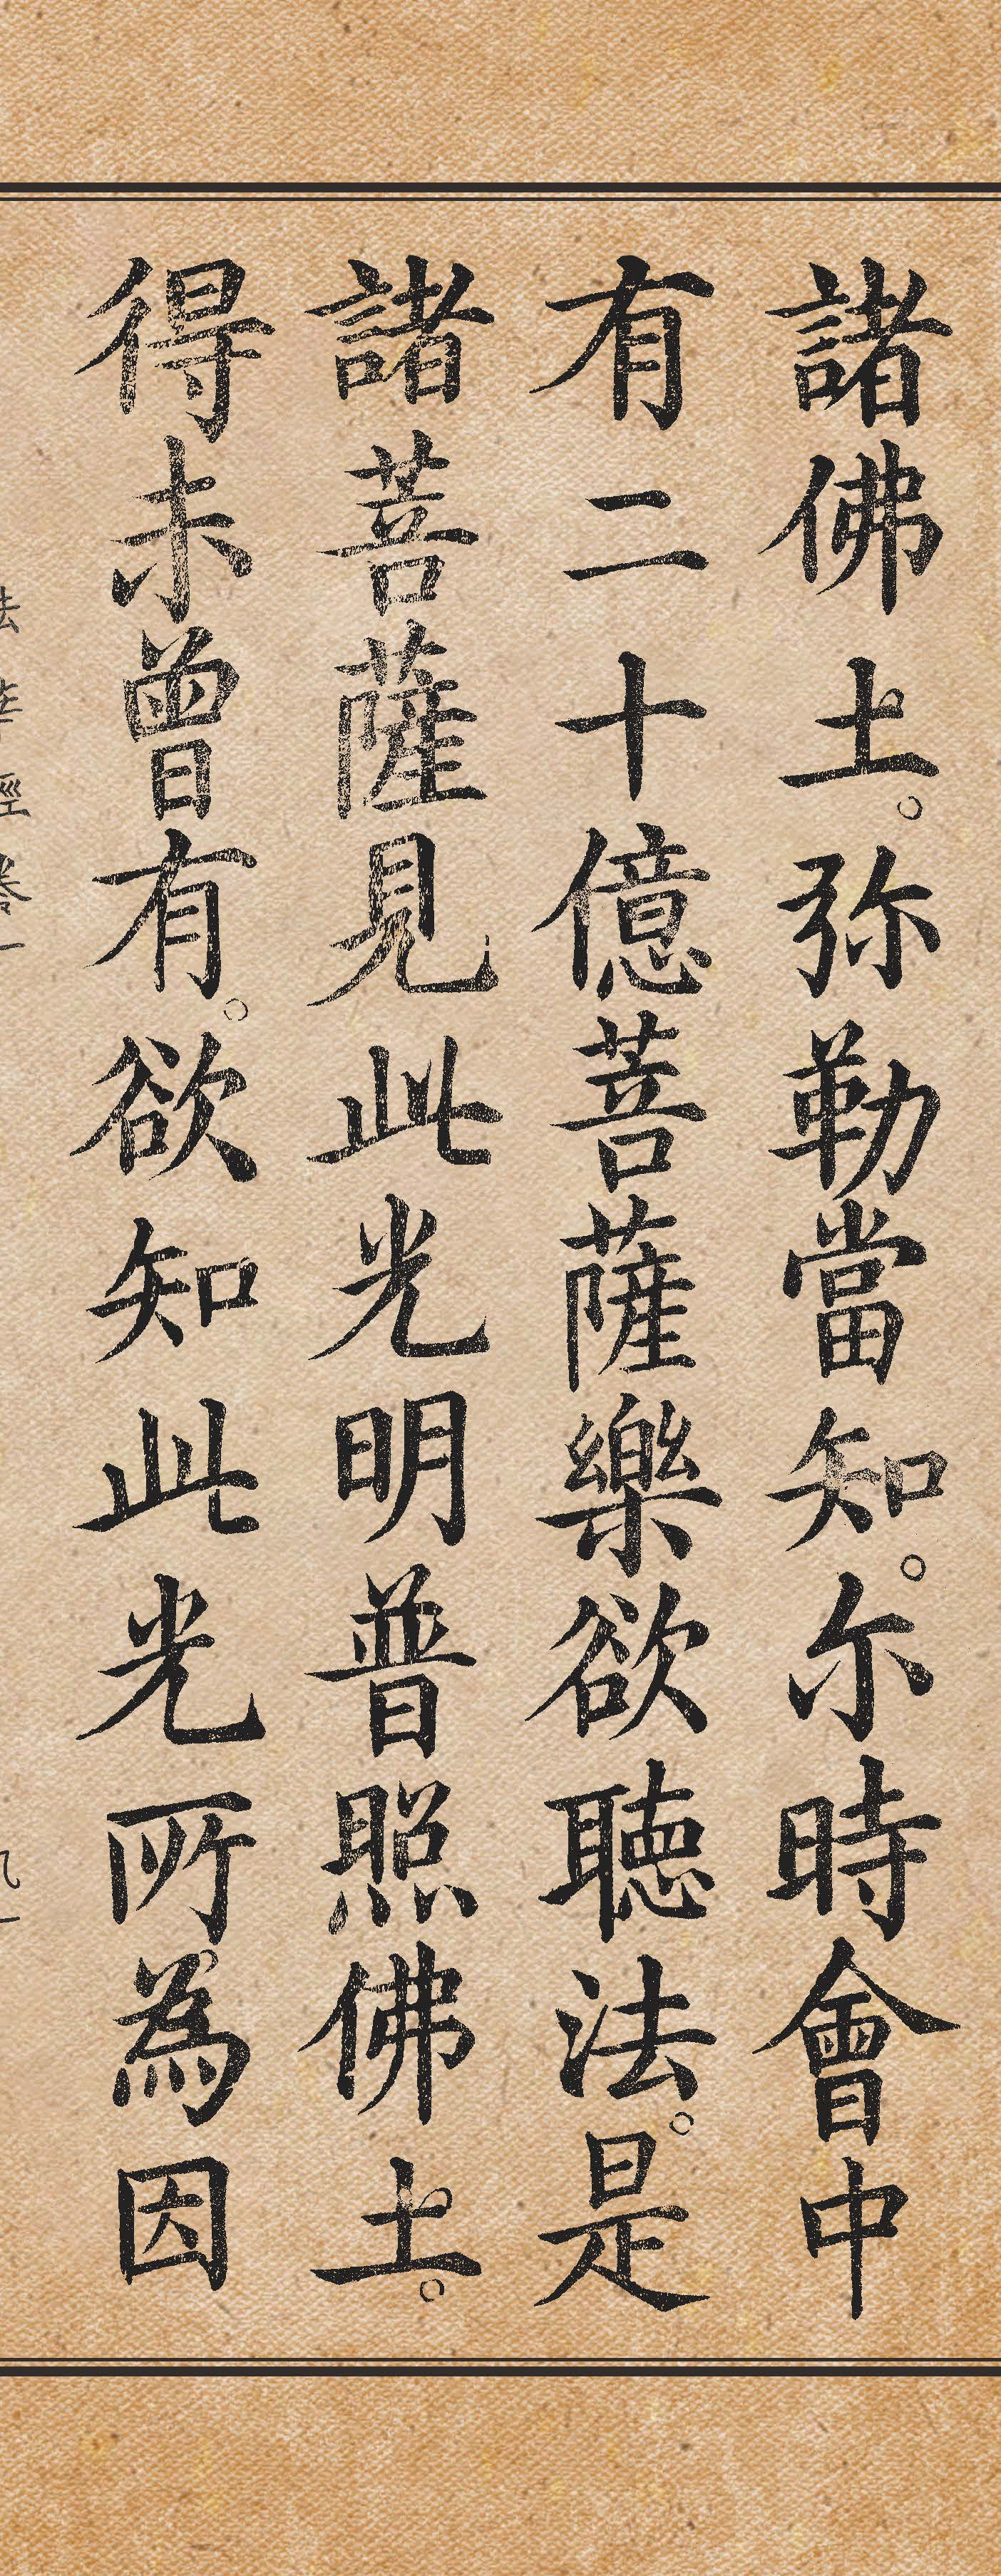 諸佛土。弥勒當知。尔時會中
有二十億菩薩樂欲聽法。是
諸菩薩見此光明普照佛土。
得未曾有。欲知此光所為因
法華經卷一